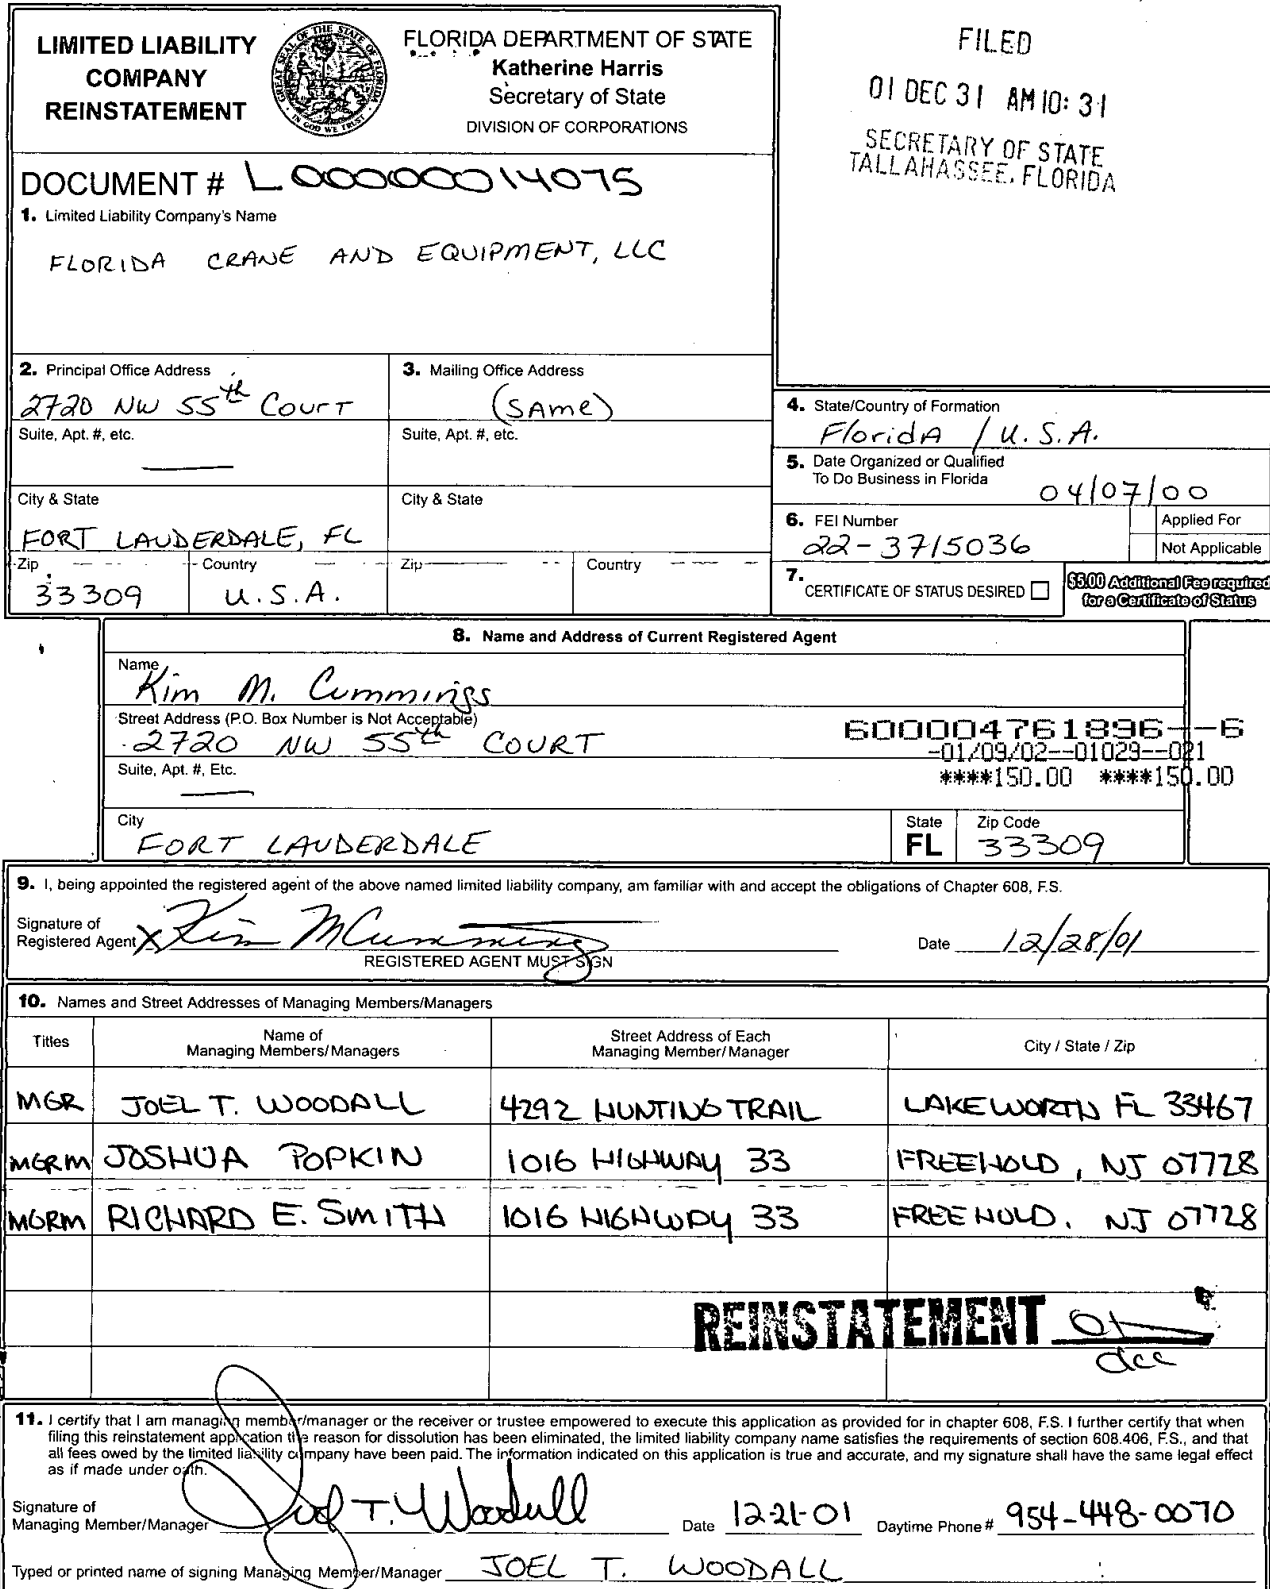 LIMITED LIABILITY
COMPANY
REINSTATEMENT
GREAT SEAL OF THE STATE OF FLORIDA
IN GOD WE TRUST
FLORIDA DEPARTMENT OF STATE
Katherine Harris
Secretary of State
DIVISION OF CORPORATIONS
FILED
01 DEC 31 AM 10:31
SECRETARY OF STATE
TALLAHASSEE, FLORIDA
DOCUMENT # L00000014075
1. Limited Liability Company's Name
FLORIDA CRANE AND EQUIPMENT, LLC
2. Principal Office Address
2720 NW 55th COURT
Suite, Apt. #, etc.
City & State
FORT LAUDERDALE, FL
Zip Country
33309 U.S.A.
3. Mailing Office Address
(SAME)
Suite, Apt. #, etc.
City & State
Zip Country
4. State/Country of Formation
FloridA / U.S.A.
5. Date Organized or Qualified
To Do Business in Florida 04/07/00
6. FEI Number
22-3715036
Applied For
Not Applicable
7. CERTIFICATE OF STATUS DESIRED
$5.00 Additional Fee required
for a Certificate of Status
8. Name and Address of Current Registered Agent
Name
Kim M. Cummings
Street Address (P.O. Box Number is Not Acceptable)
2720 NW 55th COURT
600004761896--6
-01/09/02--01029--021
****150.00 ****150.00
Suite, Apt. #, Etc.
City
FORT LAUDERDALE
State
FL
Zip Code
33309
9. I, being appointed the registered agent of the above named limited liability company, am familiar with and accept the obligations of Chapter 608, F.S.
Signature of
Registered Agent X Kim M Cummings Date 12/28/01
REGISTERED AGENT MUST SIGN
10. Names and Street Addresses of Managing Members/Managers
Titles
Name of
Managing Members/Managers
Street Address of Each
Managing Member/Manager
City / State / Zip
MGR JOEL T. WOODALL 4292 HUNTING TRAIL LAKE WORTH FL 33467
MGRM JOSHUA POPKIN 1016 HIGHWAY 33 FREEHOLD, NJ 07728
MGRM RICHARD E. SMITH 1016 HIGHWAY 33 FREEHOLD, NJ 07728
REINSTATEMENT 01
dcc
11. I certify that I am managing member/manager or the receiver or trustee empowered to execute this application as provided for in chapter 608, F.S. I further certify that when
filing this reinstatement application the reason for dissolution has been eliminated, the limited liability company name satisfies the requirements of section 608.406, F.S., and that
all fees owed by the limited liability company have been paid. The information indicated on this application is true and accurate, and my signature shall have the same legal effect
as if made under oath.
Signature of
Managing Member/Manager Joel T. Woodall Date 12-21-01 Daytime Phone # 954-448-0070
Typed or printed name of signing Managing Member/Manager JOEL T. WOODALL